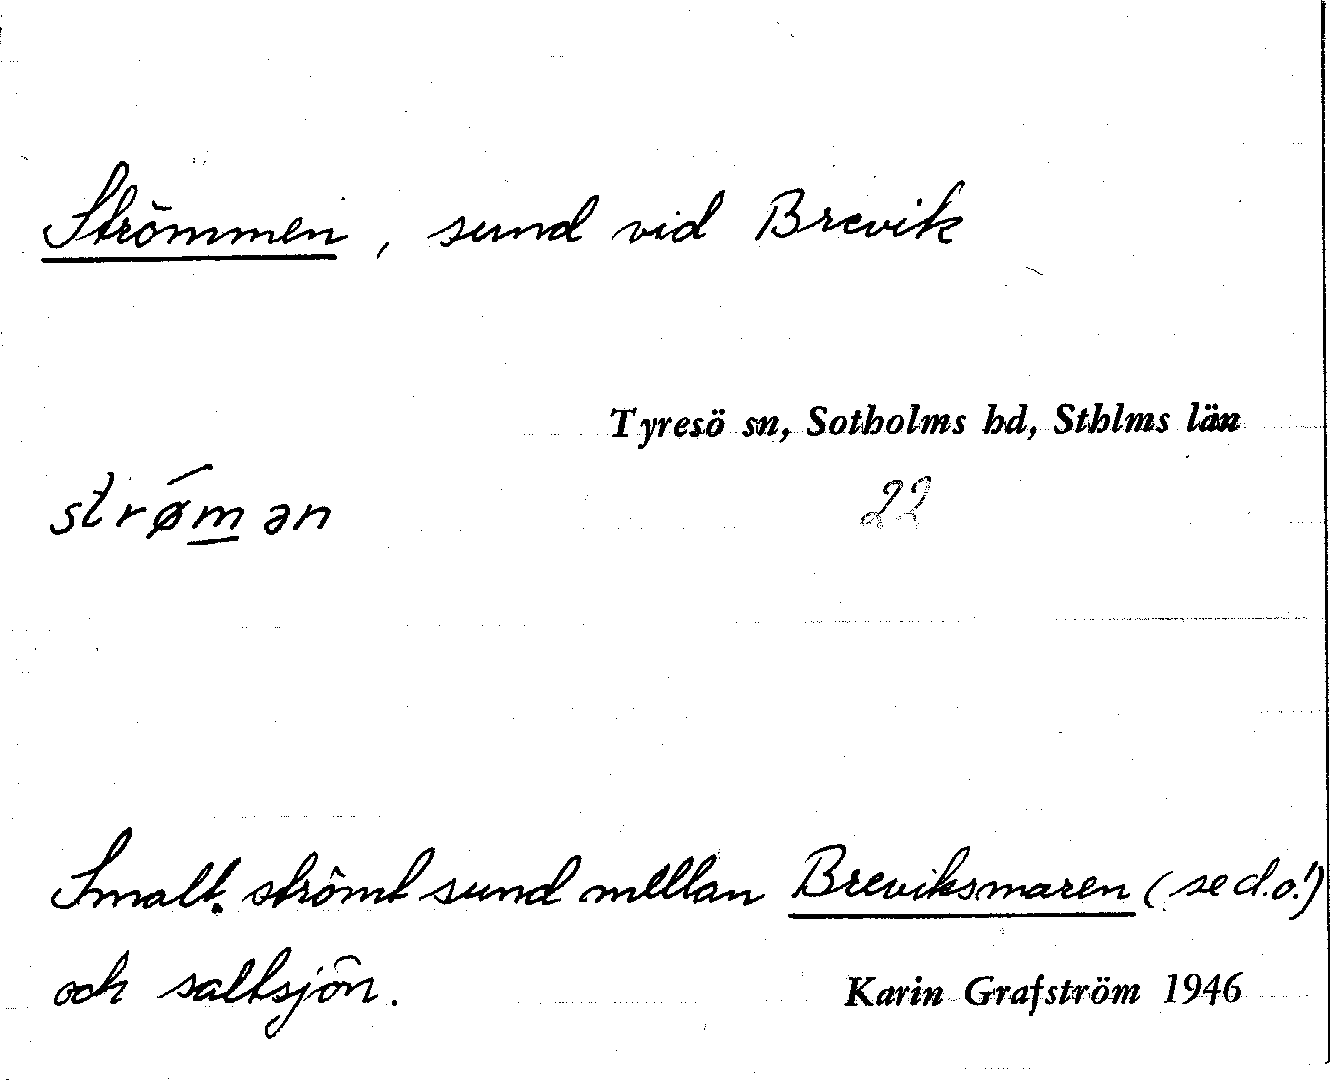 Strömmen, sund vid Brevik
Tyresö sn, Sotholms hd, Sthlms län
strǿm̲ ən
22
Smalt, strömt sund mellan Breviksmaren (se d.o.!)
och saltsjön.
Karin Grafström 1946